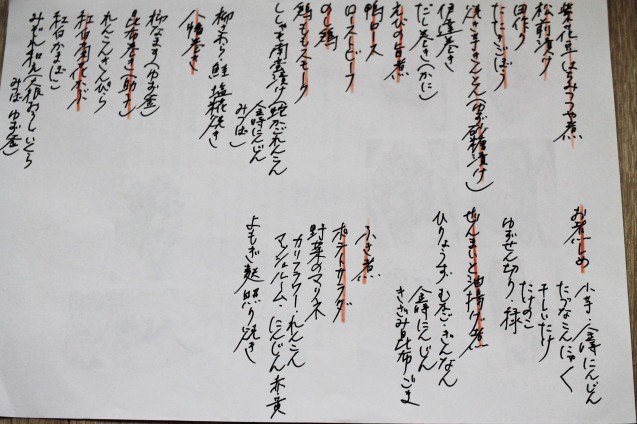 紫花豆 はちみつつや煮
松前漬け
田作り
たたきごぼう
焼き芋きんとん(ゆず砂糖漬け)
伊達巻き
だし巻き(かに)
えびの旨煮
鴨ロース
ローストビーフ
のし鶏
鶏ももスモーク
ししゃも南蛮漬け(卵がれんこん
金時にんじん
みつば)
柳裂り鮭塩糀焼き
八幡巻き
柿なます(ゆず釜)
昆布巻き(助子)
れんこんきんぴら
紅白菊花かぶ
紅白かまぼこ
みぞれ和え(大根おろし いくら
みつば ゆず釜)
お煮しめ 小芋・金時にんじん
たづなこんにゃく
干しいたけ
たけのこ
ゆばせん切り・様
ぜんまいと油揚げ煮
ひりょうず むかご・ぎんなん
金時にんじん
きざみ昆布 ごま
ふき煮
ポテトサラダ
野菜のマリネ
カリフラワー・れんこん
マッシュルーム・にんじん 赤黄
よもぎ麩 照り焼き